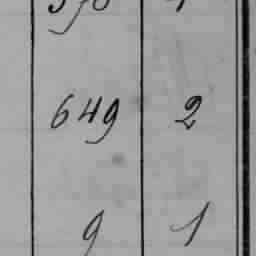 649 2
9 1